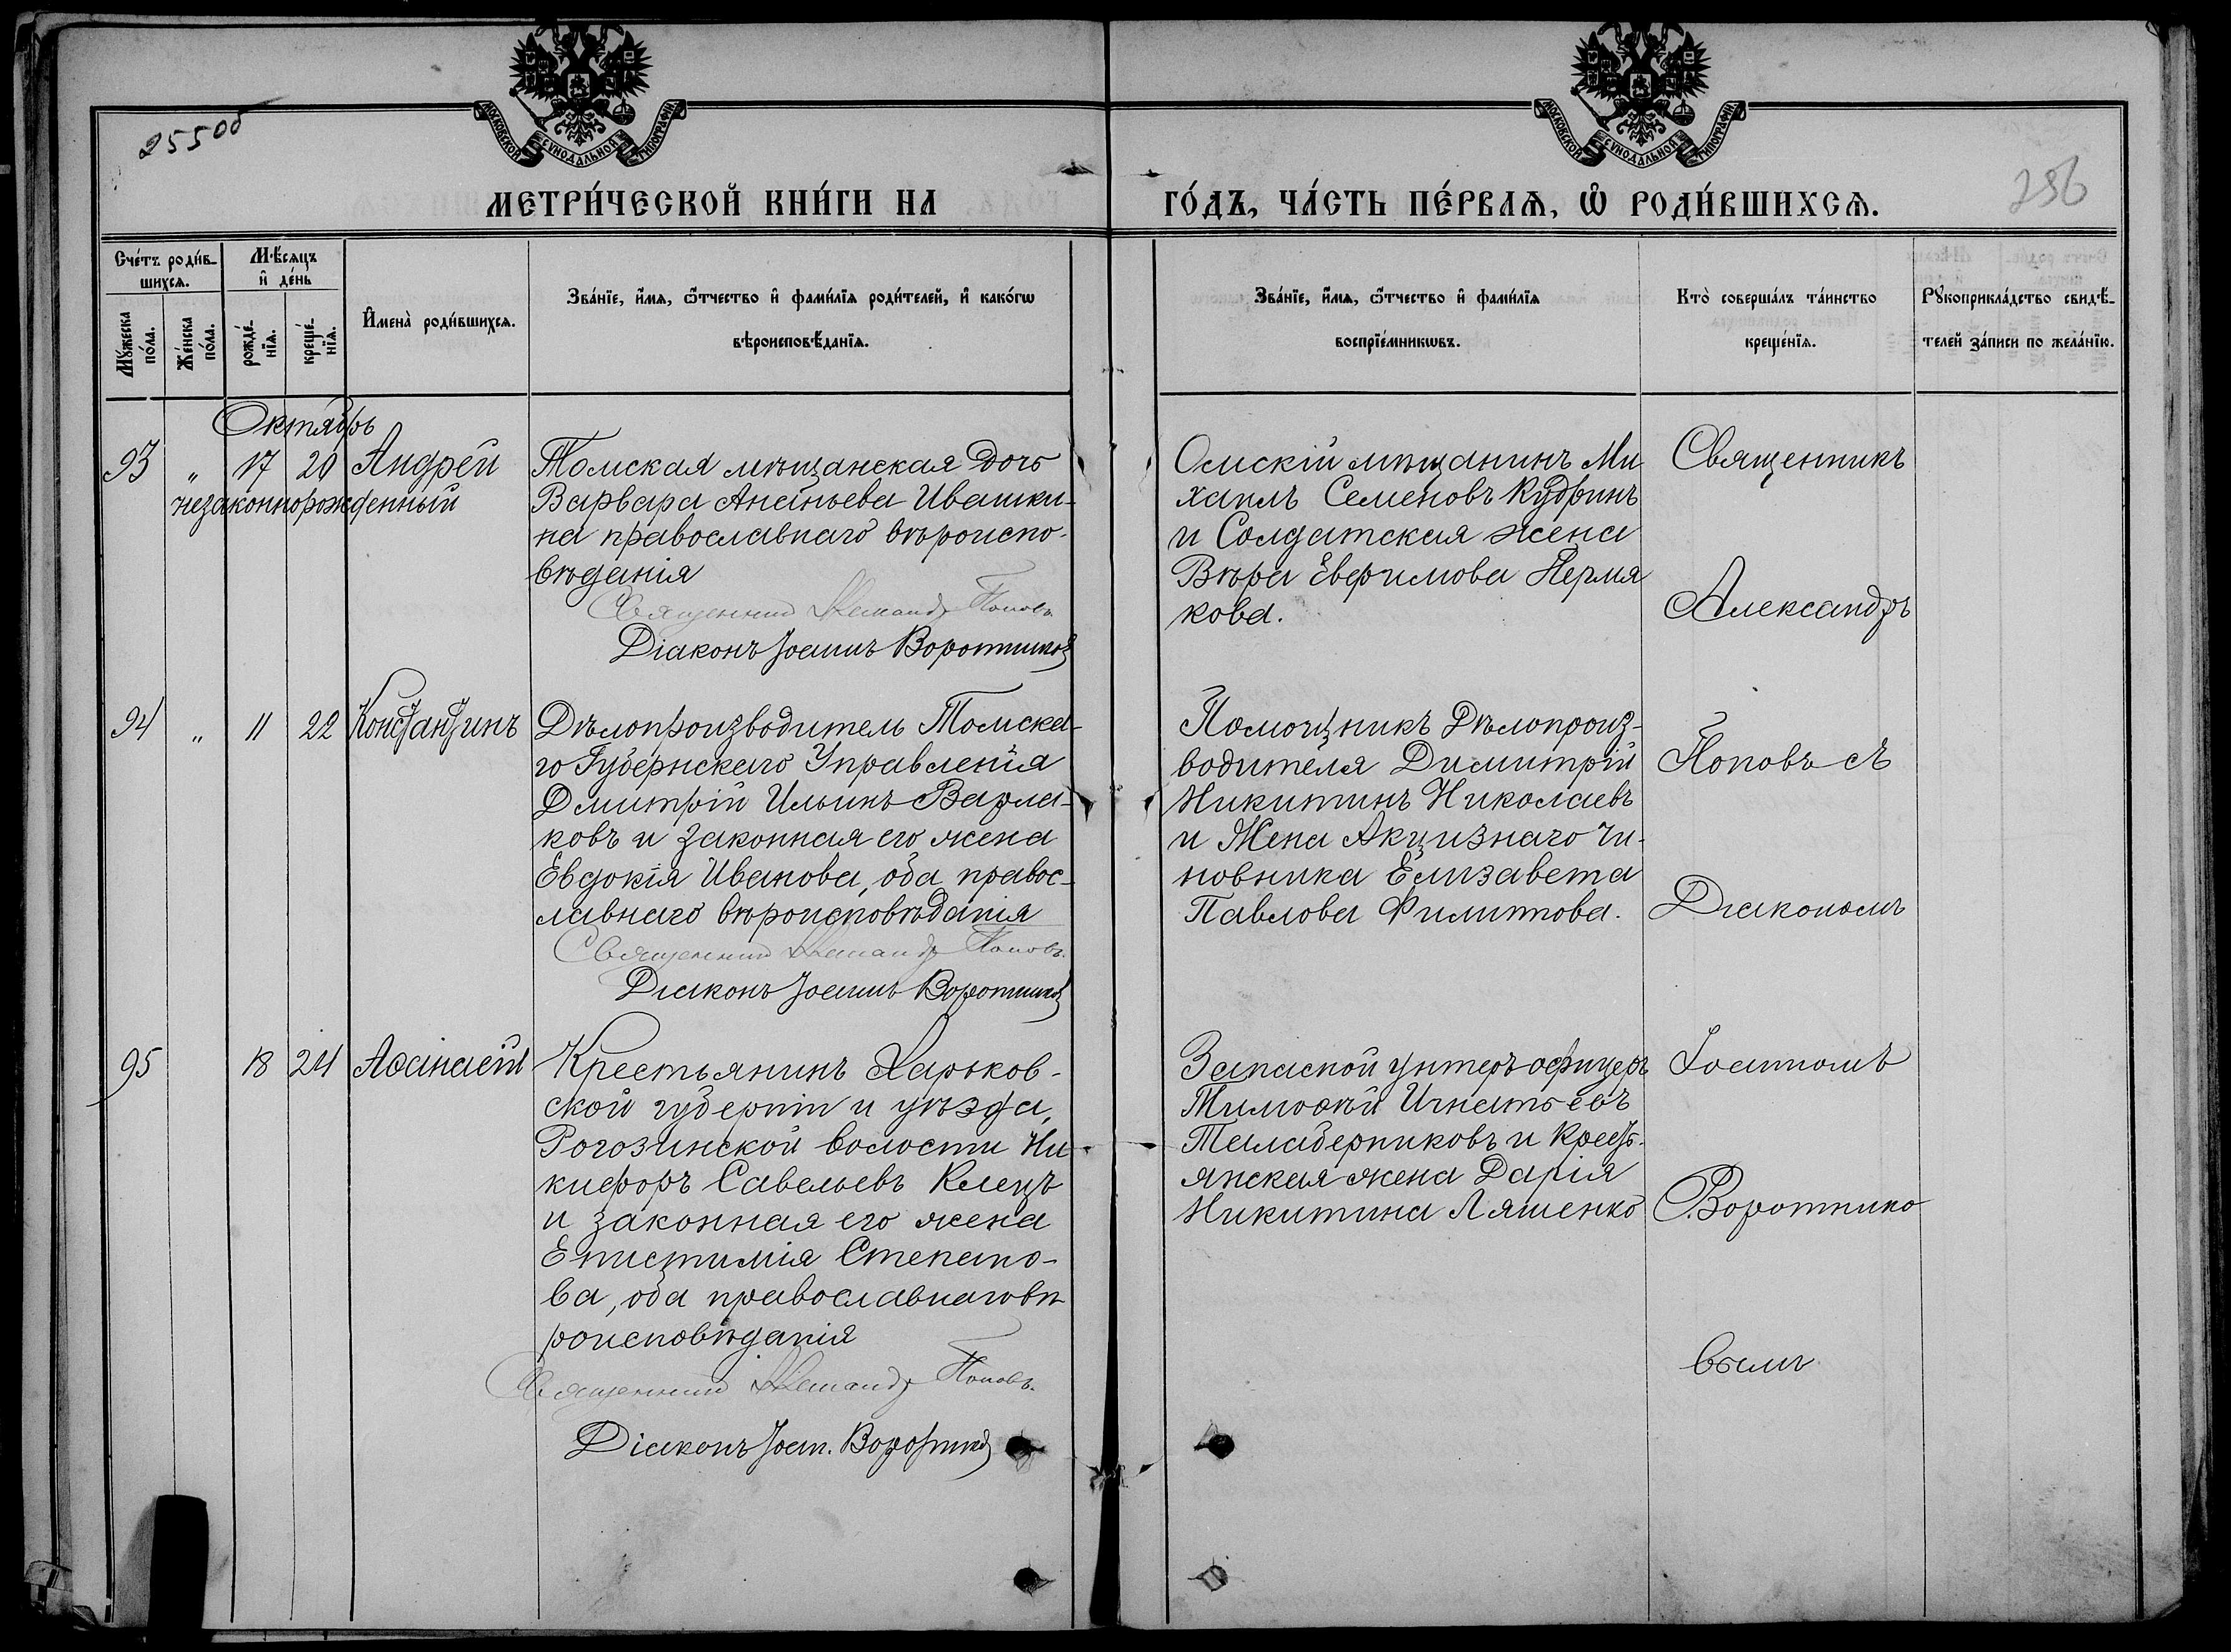 255об
256
МОСКОВСКОЙ СѴНОДАЛЬНОЙ ТИПОГРАФІИ
МОСКОВСКОЙ СѴНОДАЛЬНОЙ ТИПОГРАФІИ
МЕТРИ́ЧЕСКОЙ КНИ́ГИ НА
ГО́ДЪ, ЧА́СТЬ ПЕ́РВАѦ, Ѽ РОДИ́ВШИХСѦ.
Сче́тъ роди́в-
шихсѧ.
Мꙋ́жеска
по́ла.
Же́нска
по́ла.
Мѣ́сѧцъ
и҆ де́нь
рожде́-
нїѧ.
креще́-
нїѧ.
И҆мена̀ роди́вшихсѧ.
Зва́нїе, и҆́мѧ, ѻ҆́тчество и҆ фами́лїѧ роди́телей, и҆ како́гѡ
вѣроисповѣ́данїѧ.
Зва́нїе, и҆́мѧ, ѻ҆́тчество и҆ фами́лїѧ
воспрїе́мникѡвъ.
Кто̀ соверша́лъ та́инство
креще́нїѧ.
Рꙋкоприкла́дство свидѣ́-
телей за́писи по жела́нїю.
Октябрь
93 " 17 20 Андрей
незаконнорожденный
Томская мѣщанская дочь
Варвара Ананьева Ивашки-
на православнаго вѣроиспо-
вѣданія
Священникъ Александръ Поповъ.
Діаконъ Іоаннъ Воротниковъ
Омскій мѣщанинъ Ми
хаилъ Семеновъ Кудринъ
и Солдатская жена
Вѣра Евфимова Перми
кова.
94 " 11 22 Константинъ
Дѣлопроизводитель Томска-
го Губернскаго Управленія
Дмитрій Ильинъ Варла-
ковъ и законная его жена
Евдокія Иванова, оба правос-
лавнаго вѣроисповѣданія
Священникъ Александръ Поповъ.
Діаконъ Іоаннъ Воротниковъ
Помощникъ Дѣлопроиз-
водителя Димитрій
Никитинъ Николаевъ
и Жена Акцизнаго чи-
новника Елизавета
Павлова Филитова.
95 18 24 Аѳанасій
Крестьянинъ Харьков-
ской губерніи и уѣзда,
Рогозинской волости Ни-
кифоръ Савельевъ Клецъ
и законная его жена
Епистимія Степано-
ва, оба православнаго вѣ
роисповѣданія
Священникъ Александръ Поповъ.
Діаконъ Іоан. Воротников
Запасной унтеръ-офицеръ
Тимоѳей Игнатьевъ
Теладерниковъ и Крест-
янская жена Дарія
Никитина Ляшенко
Священникъ
Александръ
Поповъ съ
Діакономъ
Іоанномъ
Воротнико
вымъ